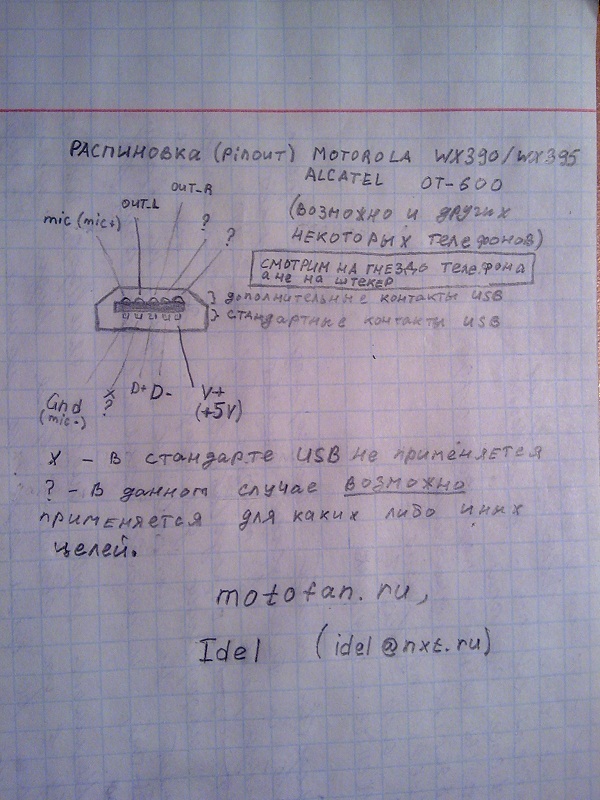 РАСПИНОВКА (PinOUT) MOTOROLA WX390/WX395
ALCATEL OT-600
(ВОЗМОЖНО И ДРУГИХ
НЕКОТОРЫХ ТЕЛЕФОНОВ)
OUT-R
OUT-L
mic (mic+)
?
?
СМОТРИМ НА ГНЕЗДО ТЕЛЕФОНА
А НЕ НА ШТЕКЕР
} ДОПОЛНИТЕЛЬНЫЕ КОНТАКТЫ USB
} СТАНДАРТНЫЕ КОНТАКТЫ USB
Gnd
(mic-)
X
?
D+ D-
V+
(+5V)
X - В СТАНДАРТЕ USB НЕ ПРИМЕНЯЕТСЯ
? - В ДАННОМ СЛУЧАЕ ВОЗМОЖНО
ПРИМЕНЯЕТСЯ ДЛЯ КАКИХ ЛИБО ИНЫХ
ЦЕЛЕЙ.
motofan.ru,
Idel (idel@nxt.ru)